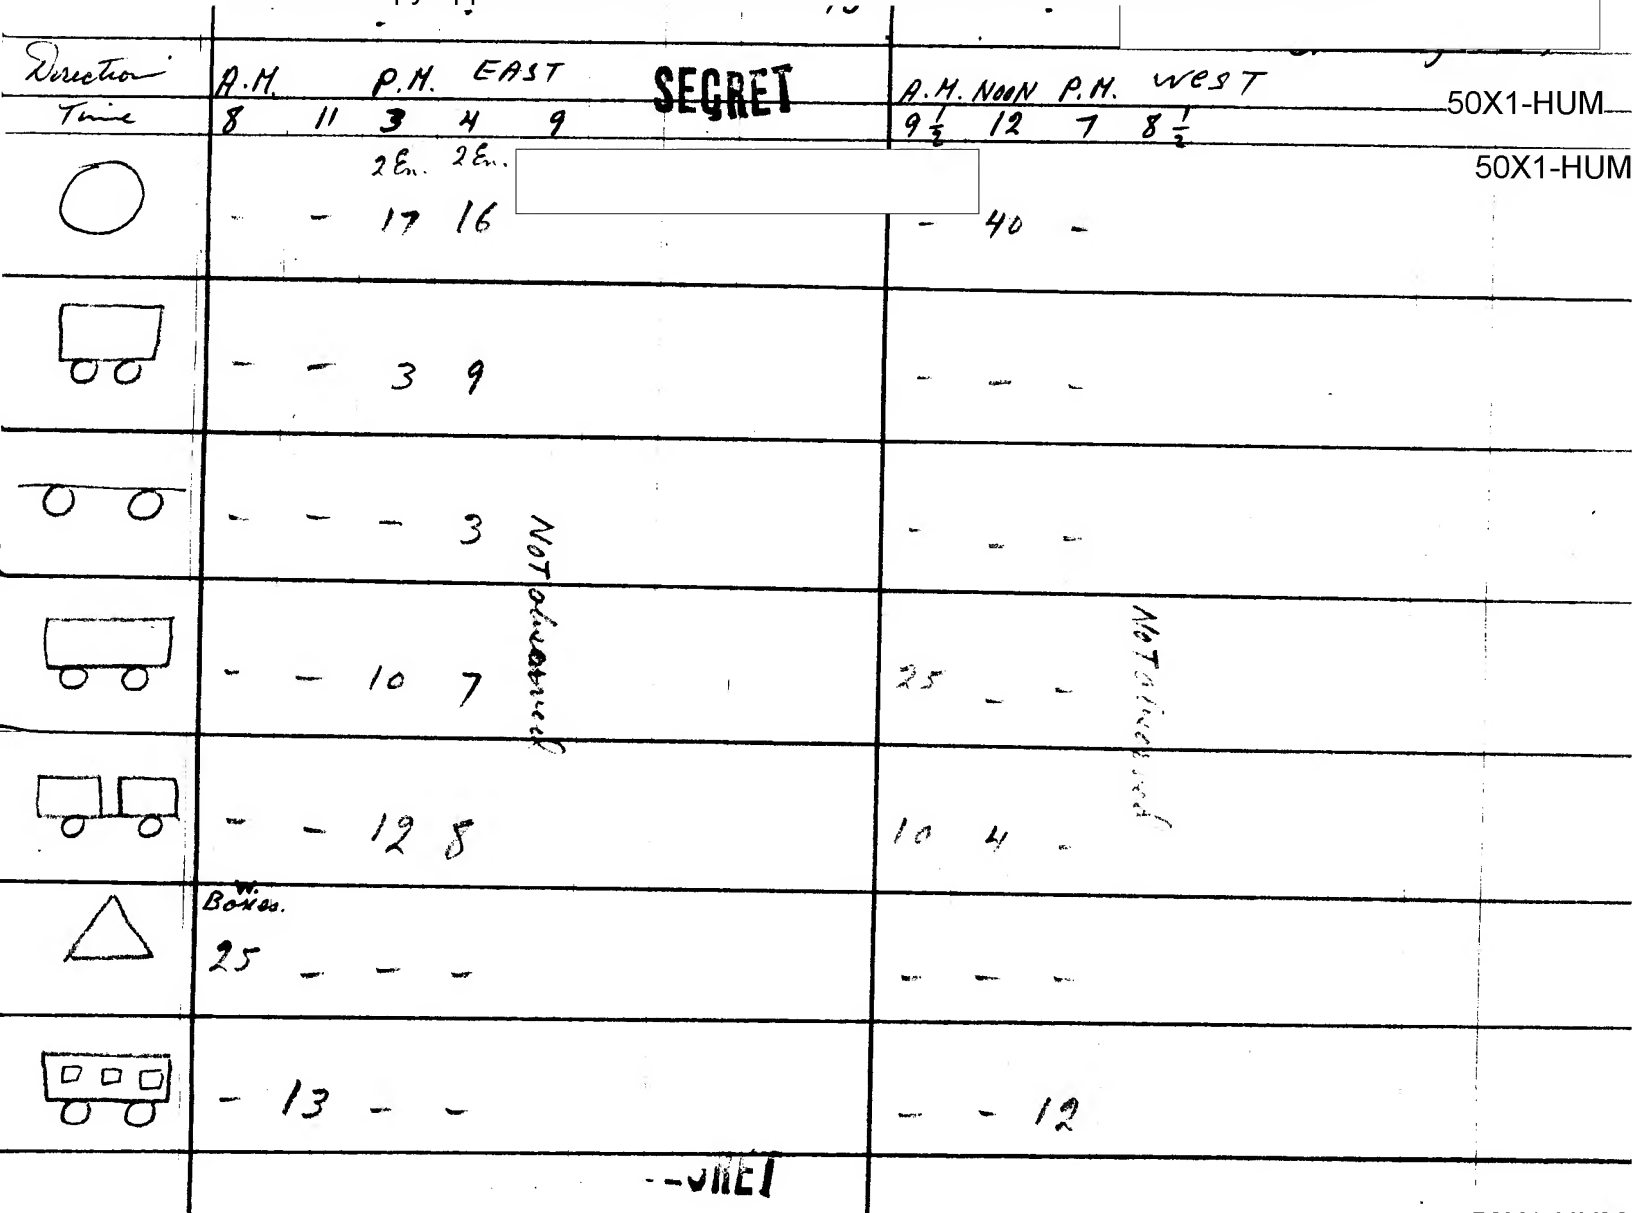 Direction A.M. P.M. EAST SECRET A.M. NOON P.M. WEST
50X1-HUM
Time 8 11 3 4 9 9 1/2 12 7 8 1/2
2 En. 2 En.
50X1-HUM
- - 17 16 - 40 -
- - 3 9 - - -
- - - 3 - - -
Not observed
- - 10 7 25 - -
Not observed
- - 12 8 10 4 -
W.
Boxes.
25 - - - - - -
- 13 - - - - 12